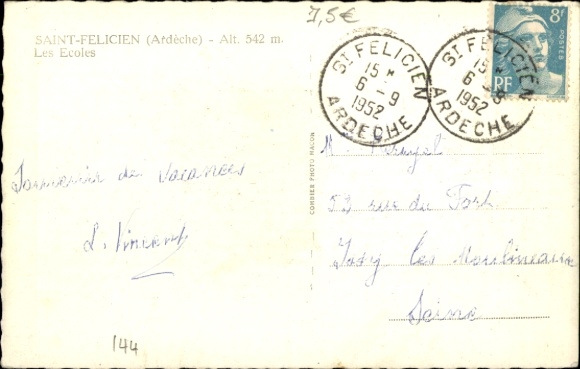 7,5€
SAINT-FELICIEN (Ardèche) - Alt. 542 m.
Les Ecoles
ST FELICIEN
15 H
6 - 9
1952
ARDECHE
ST FELICIEN
15
6 - 9
1952
ARDECHE
8f
POSTES
RF
COMBIER PHOTO MACON
Souvenir de vacances
L. Vincent
144
M.
53 rue du Fort
Issy les Moulineaux
Seine